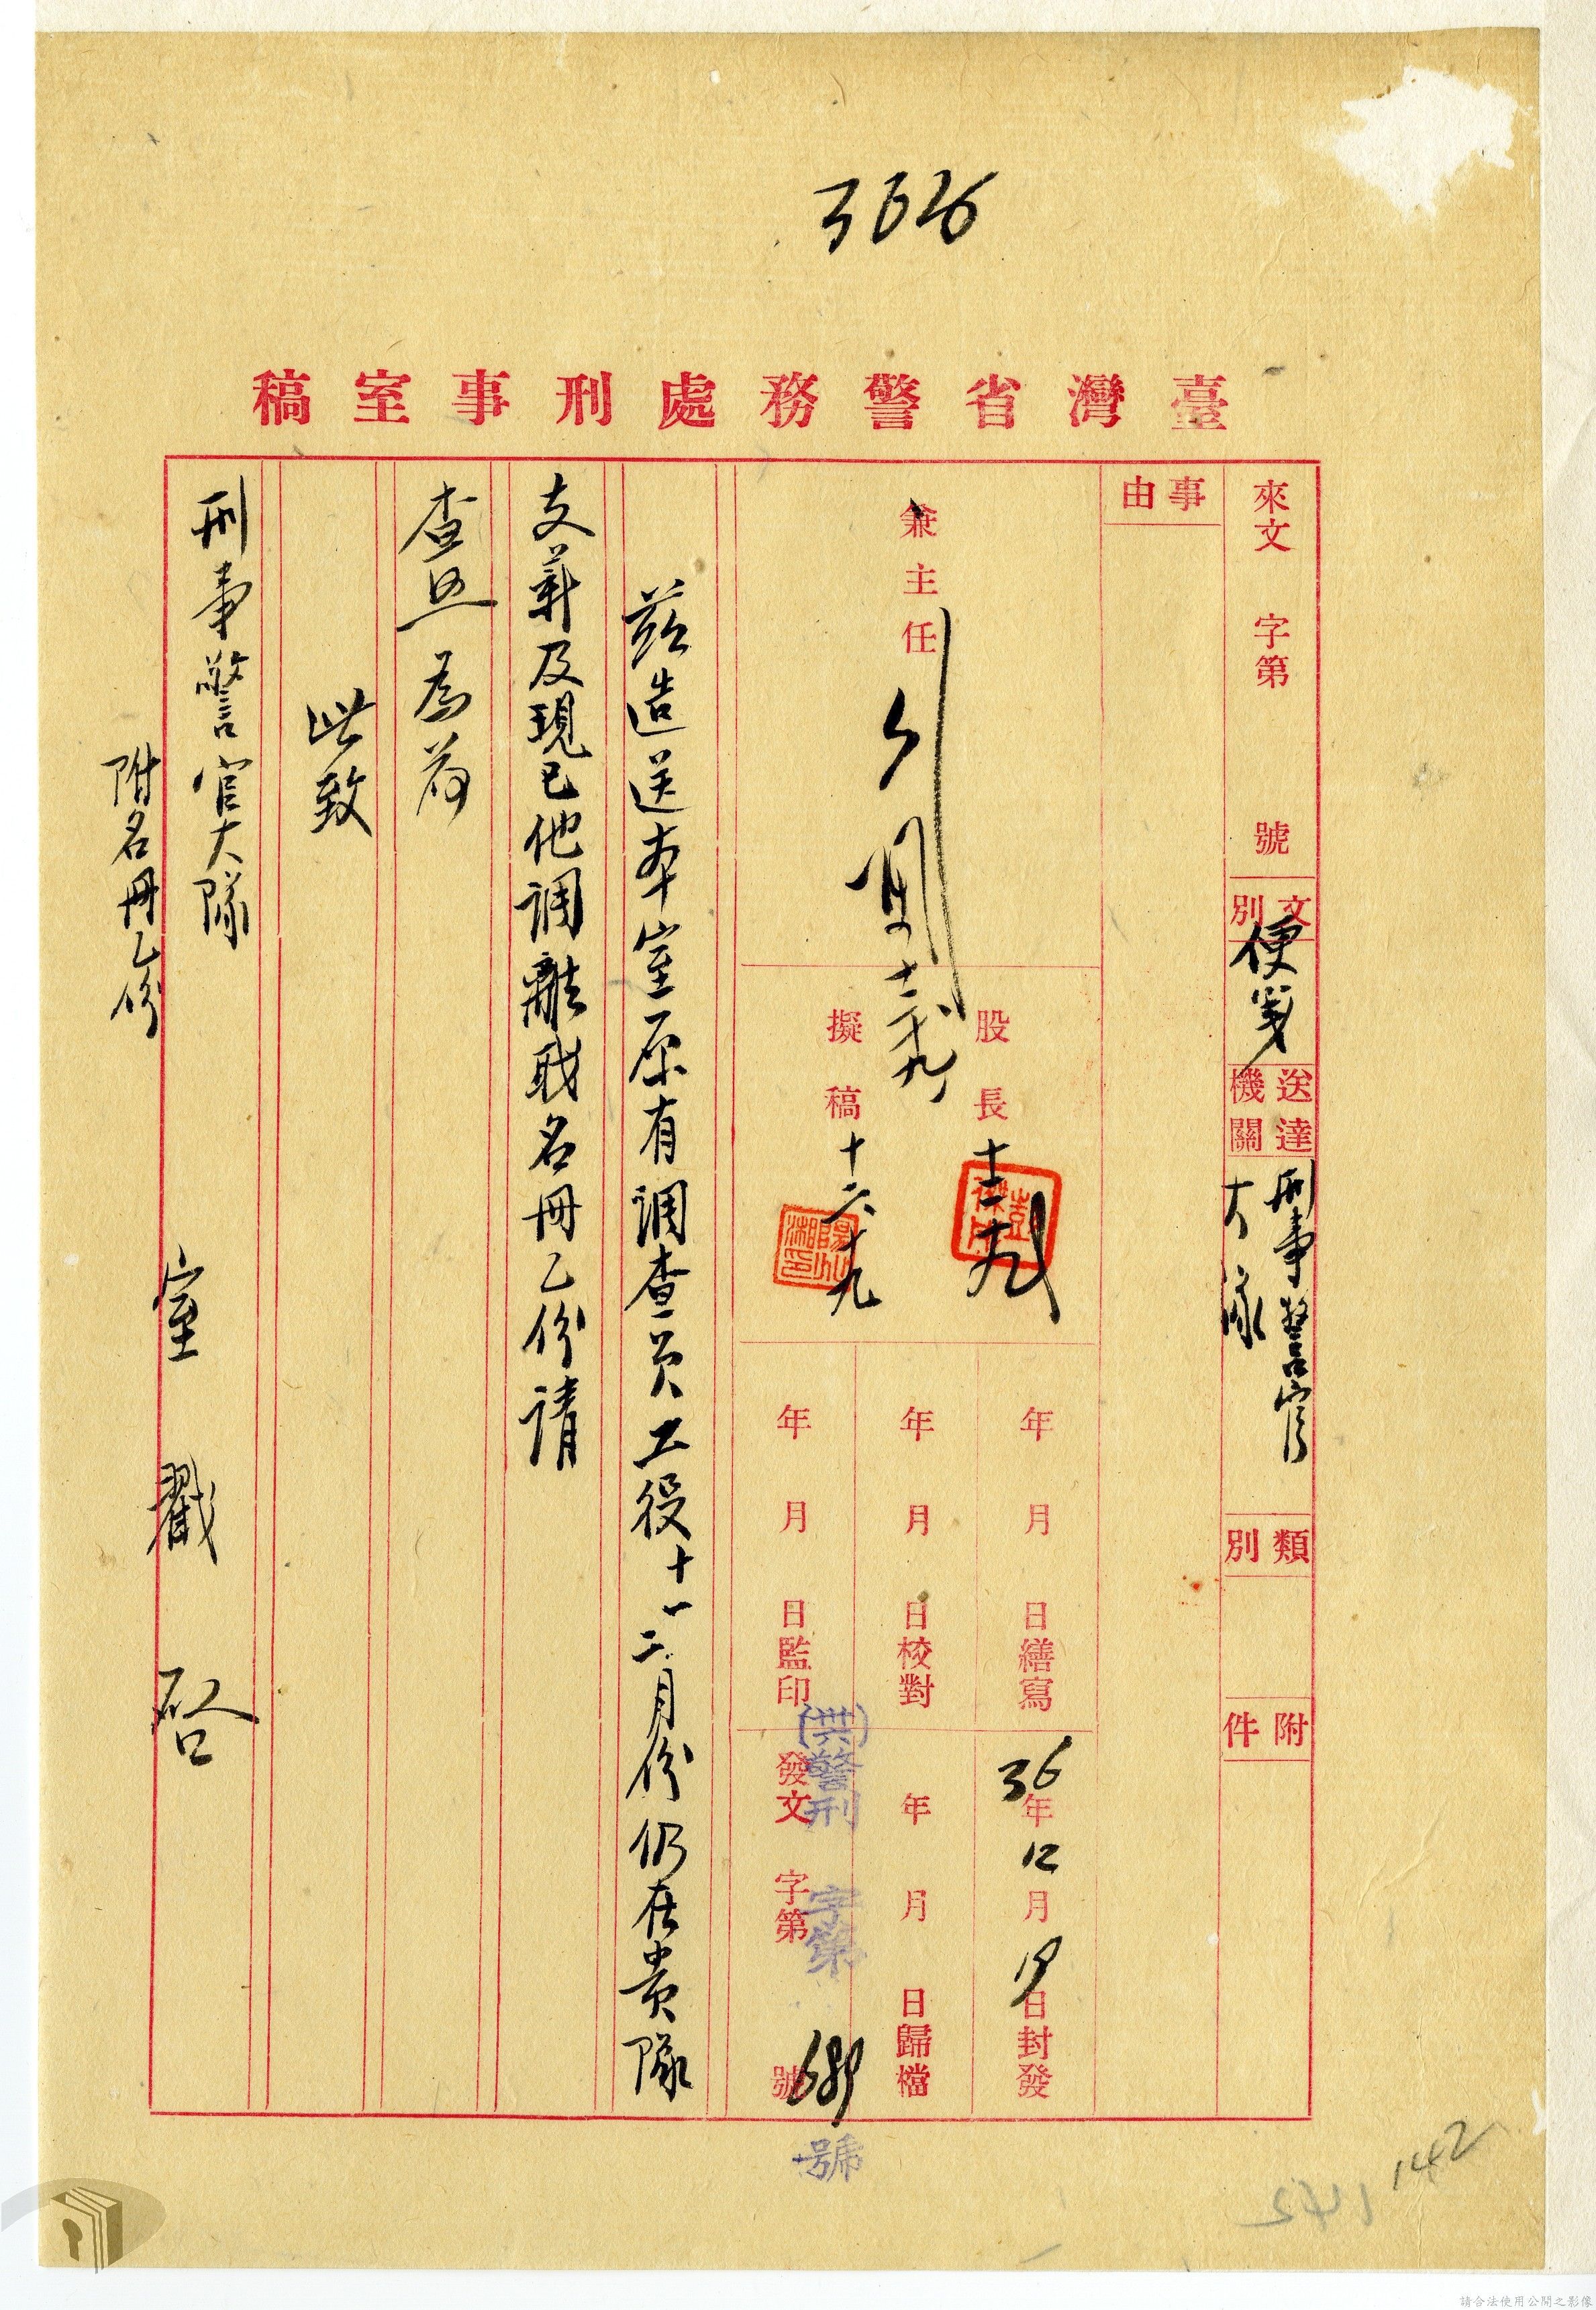 3626
臺灣省警務處刑事室稿
來文 字第 號
文別 便箋
送達機關 刑事警官大隊
類別
附件
事由
兼主任
十二、十九
股長 十二、十九
擬稿 十二、十九
年 月 日繕寫
年 月 日校對
年 月 日監印
36年12月19日封發
年 月 日歸檔
發文 字第 號
(卅六)警刑 字第 689 號
茲造送本室原有調查員工役十一、二月份仍在貴隊
支薪及現已他調離職名冊乙份請
查照為荷
此致
刑事警官大隊
附名冊乙份
室戳 啓
142
請合法使用公開之影像